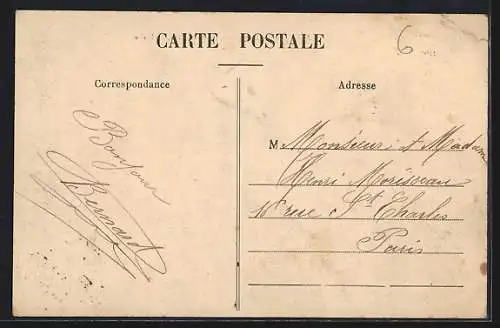 6
CARTE POSTALE
Correspondance
Adresse
Bonjour
Bernard
M Monsieur & Madame
Henri Morisseau
16 rue St Charles
Paris